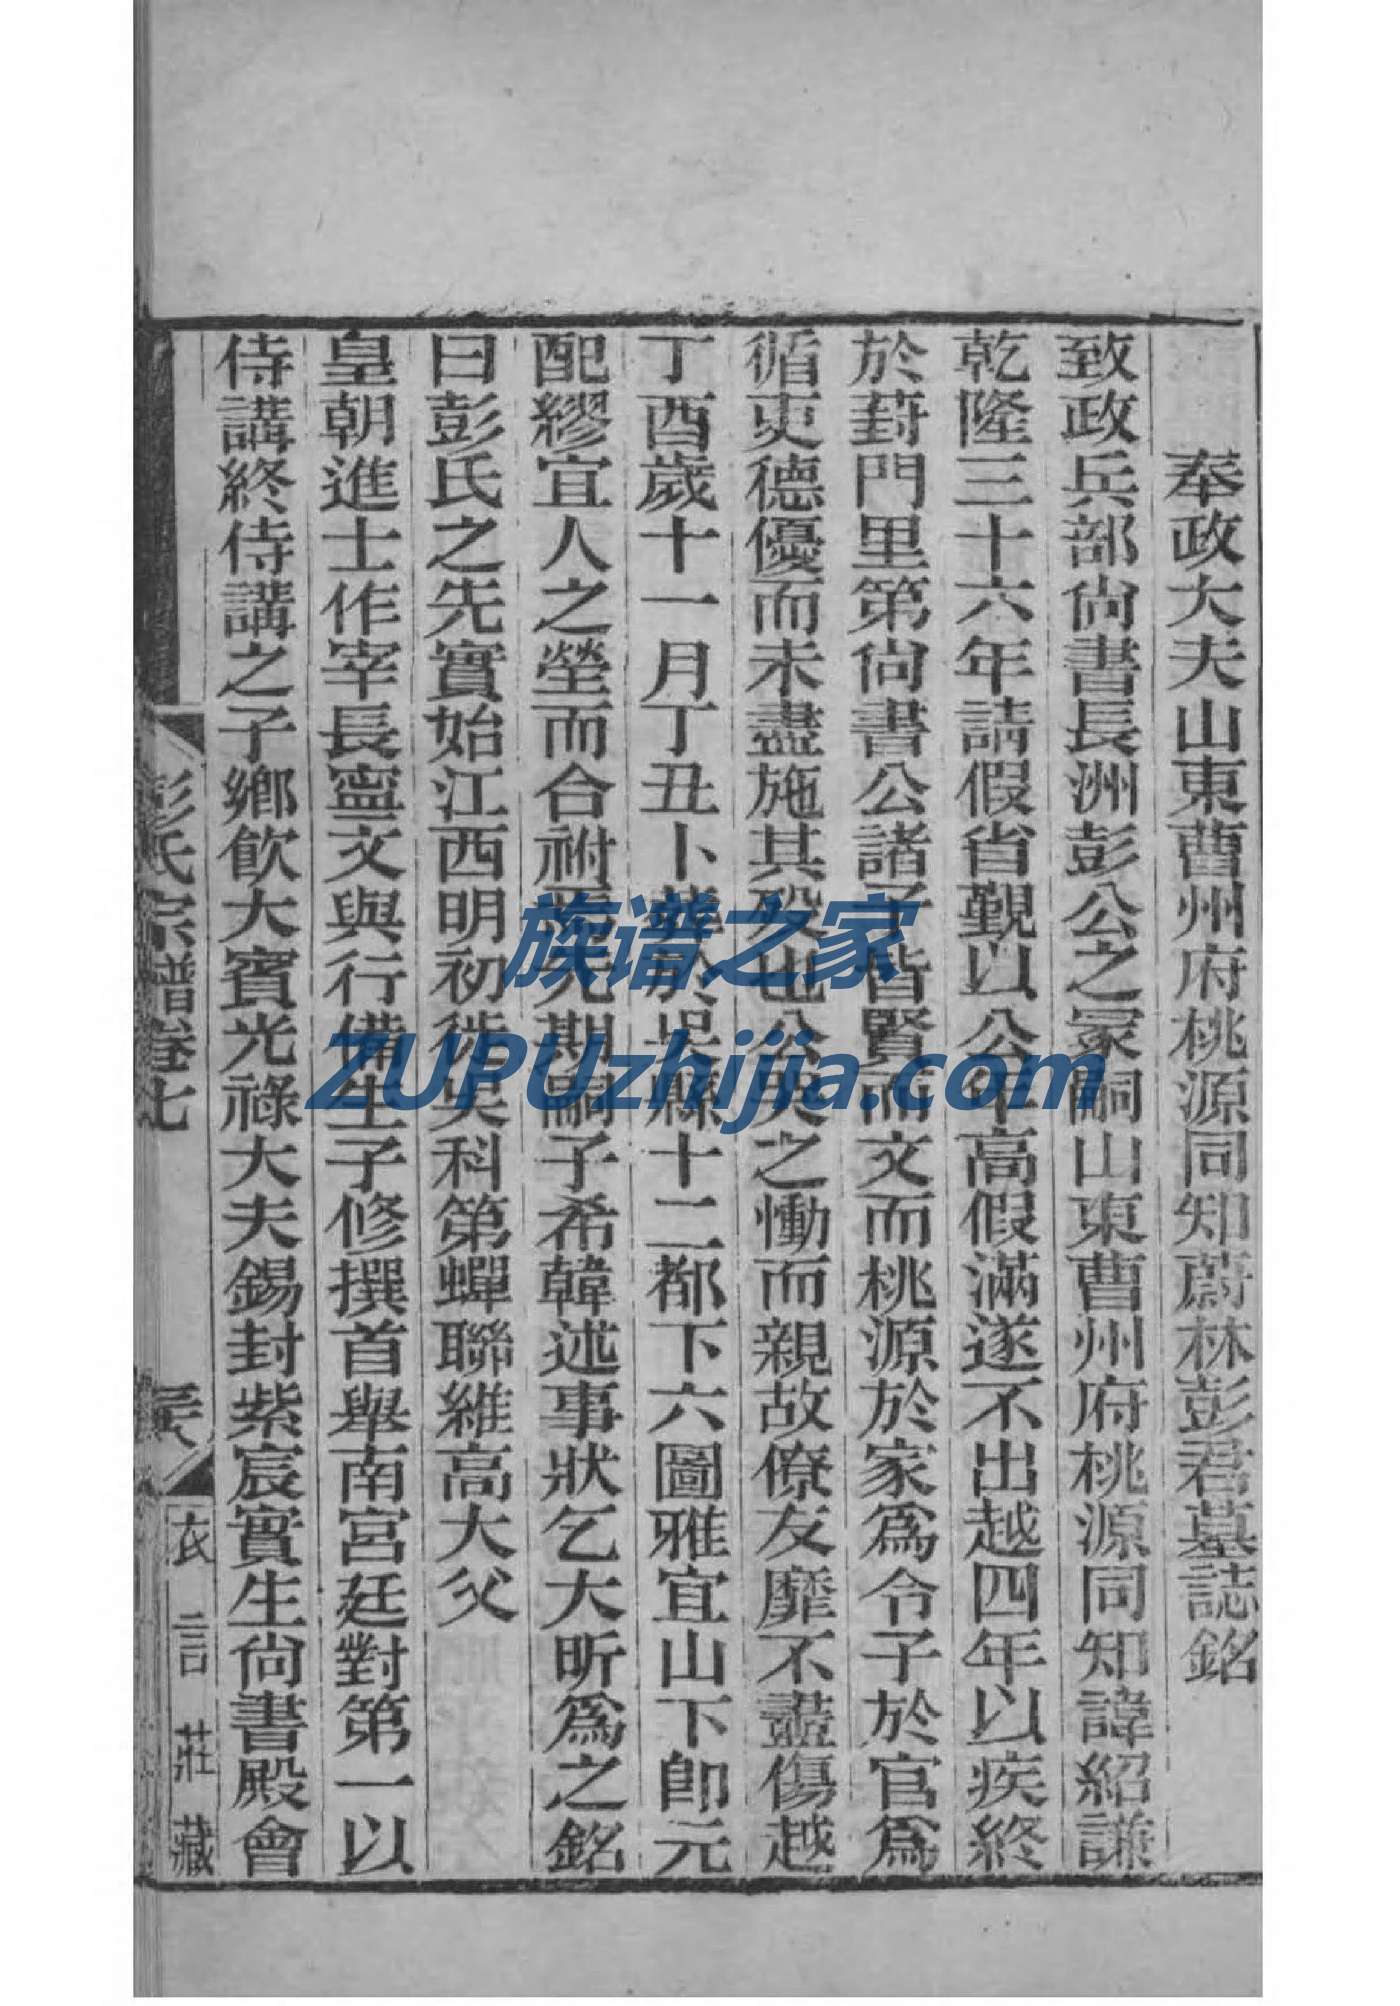 奉政大夫山東曹州府桃源同知蔚林彭君墓誌銘
致政兵部尙書長洲彭公之冢嗣山東曹州府桃源同知諱紹謙
乾隆三十六年請假省覲以公年高假滿遂不出越四年以疾終
於葑門里第尙書公諸子皆賢而文而桃源於家爲令子於官爲
循吏德優而未盡施其歿也公哭之慟而親故僚友靡不盡傷越
丁酉歲十一月丁丑卜葬於吳縣十二都下六圖雅宜山下卽元
配繆宜人之塋而合祔焉先期嗣子希韓述事狀乞大昕爲之銘
曰彭氏之先實始江西明初徙吳科第蟬聯維高大父
皇朝進士作宰長寧文與行備生子修撰首舉南宮廷對第一以
侍講終侍講之子鄉飲大賓光祿大夫錫封紫宸實生尙書殿會
彭氏宗譜卷七
衣言莊藏
族谱之家
ZUPUzhijia.com